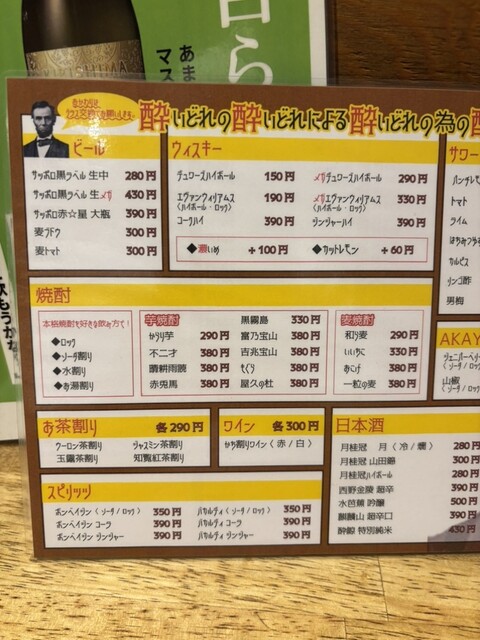 日ら
あま
マス
酔いどれの酔いどれによる酔いどれの為の酔
ビール
サッポロ黒ラベル 生中 280円
サッポロ黒ラベル 生メガ 430円
サッポロ赤☆星 大瓶 390円
麦ブドウ 300円
麦トマト 300円
ウィスキー
デュワーズハイボール 150円
エヴァンウィリアムス 190円
(ハイボール・ロック)
コークハイ 390円
メガデュワーズハイボール 290円
メガエヴァンウィリアムス 330円
(ハイボール・ロック)
ジンジャーハイ 390円
◆濃いめ +100円 ◆カットレモン +60円
サワー
パンチレモ
トマト
ライム
はちみつ
カルピス
リンゴ酢
男梅
焼酎
本格焼酎を好きな飲み方で!
◆ロック
◆ソーダ割り
◆水割り
◆お湯割り
芋焼酎
からり芋 290円
不二才 380円
晴耕雨読 380円
赤兎馬 380円
黒霧島 330円
富乃宝山 380円
吉兆宝山 380円
もぐら 380円
屋久の杜 380円
麦焼酎
和ら麦 290円
いいちこ 330円
おこげ 380円
一粒の麦 380円
AKAY
ジェニパーベリー
(ソーダ/ロック)
山椒
(ソーダ/ロック)
お茶割り 各290円
ウーロン茶割り ジャスミン茶割り
玉露茶割り 知覧紅茶割り
ワイン 各300円
かち割りワイン(赤/白)
日本酒
月桂冠 月(冷/燗) 280円
月桂冠 山田錦 300円
月桂冠ハイボール 280円
西野金陵 超辛 390円
水芭蕉 吟醸 500円
麒麟山 超辛口 390円
酔鯨 特別純米 430円
スピリッツ
ボンベイジン(ソーダ/ロック) 350円
ボンベイジン コーラ 390円
ボンベイジン ジンジャー 390円
バカルディ(ソーダ/ロック) 350円
バカルディ コーラ 390円
バカルディ ジンジャー 390円